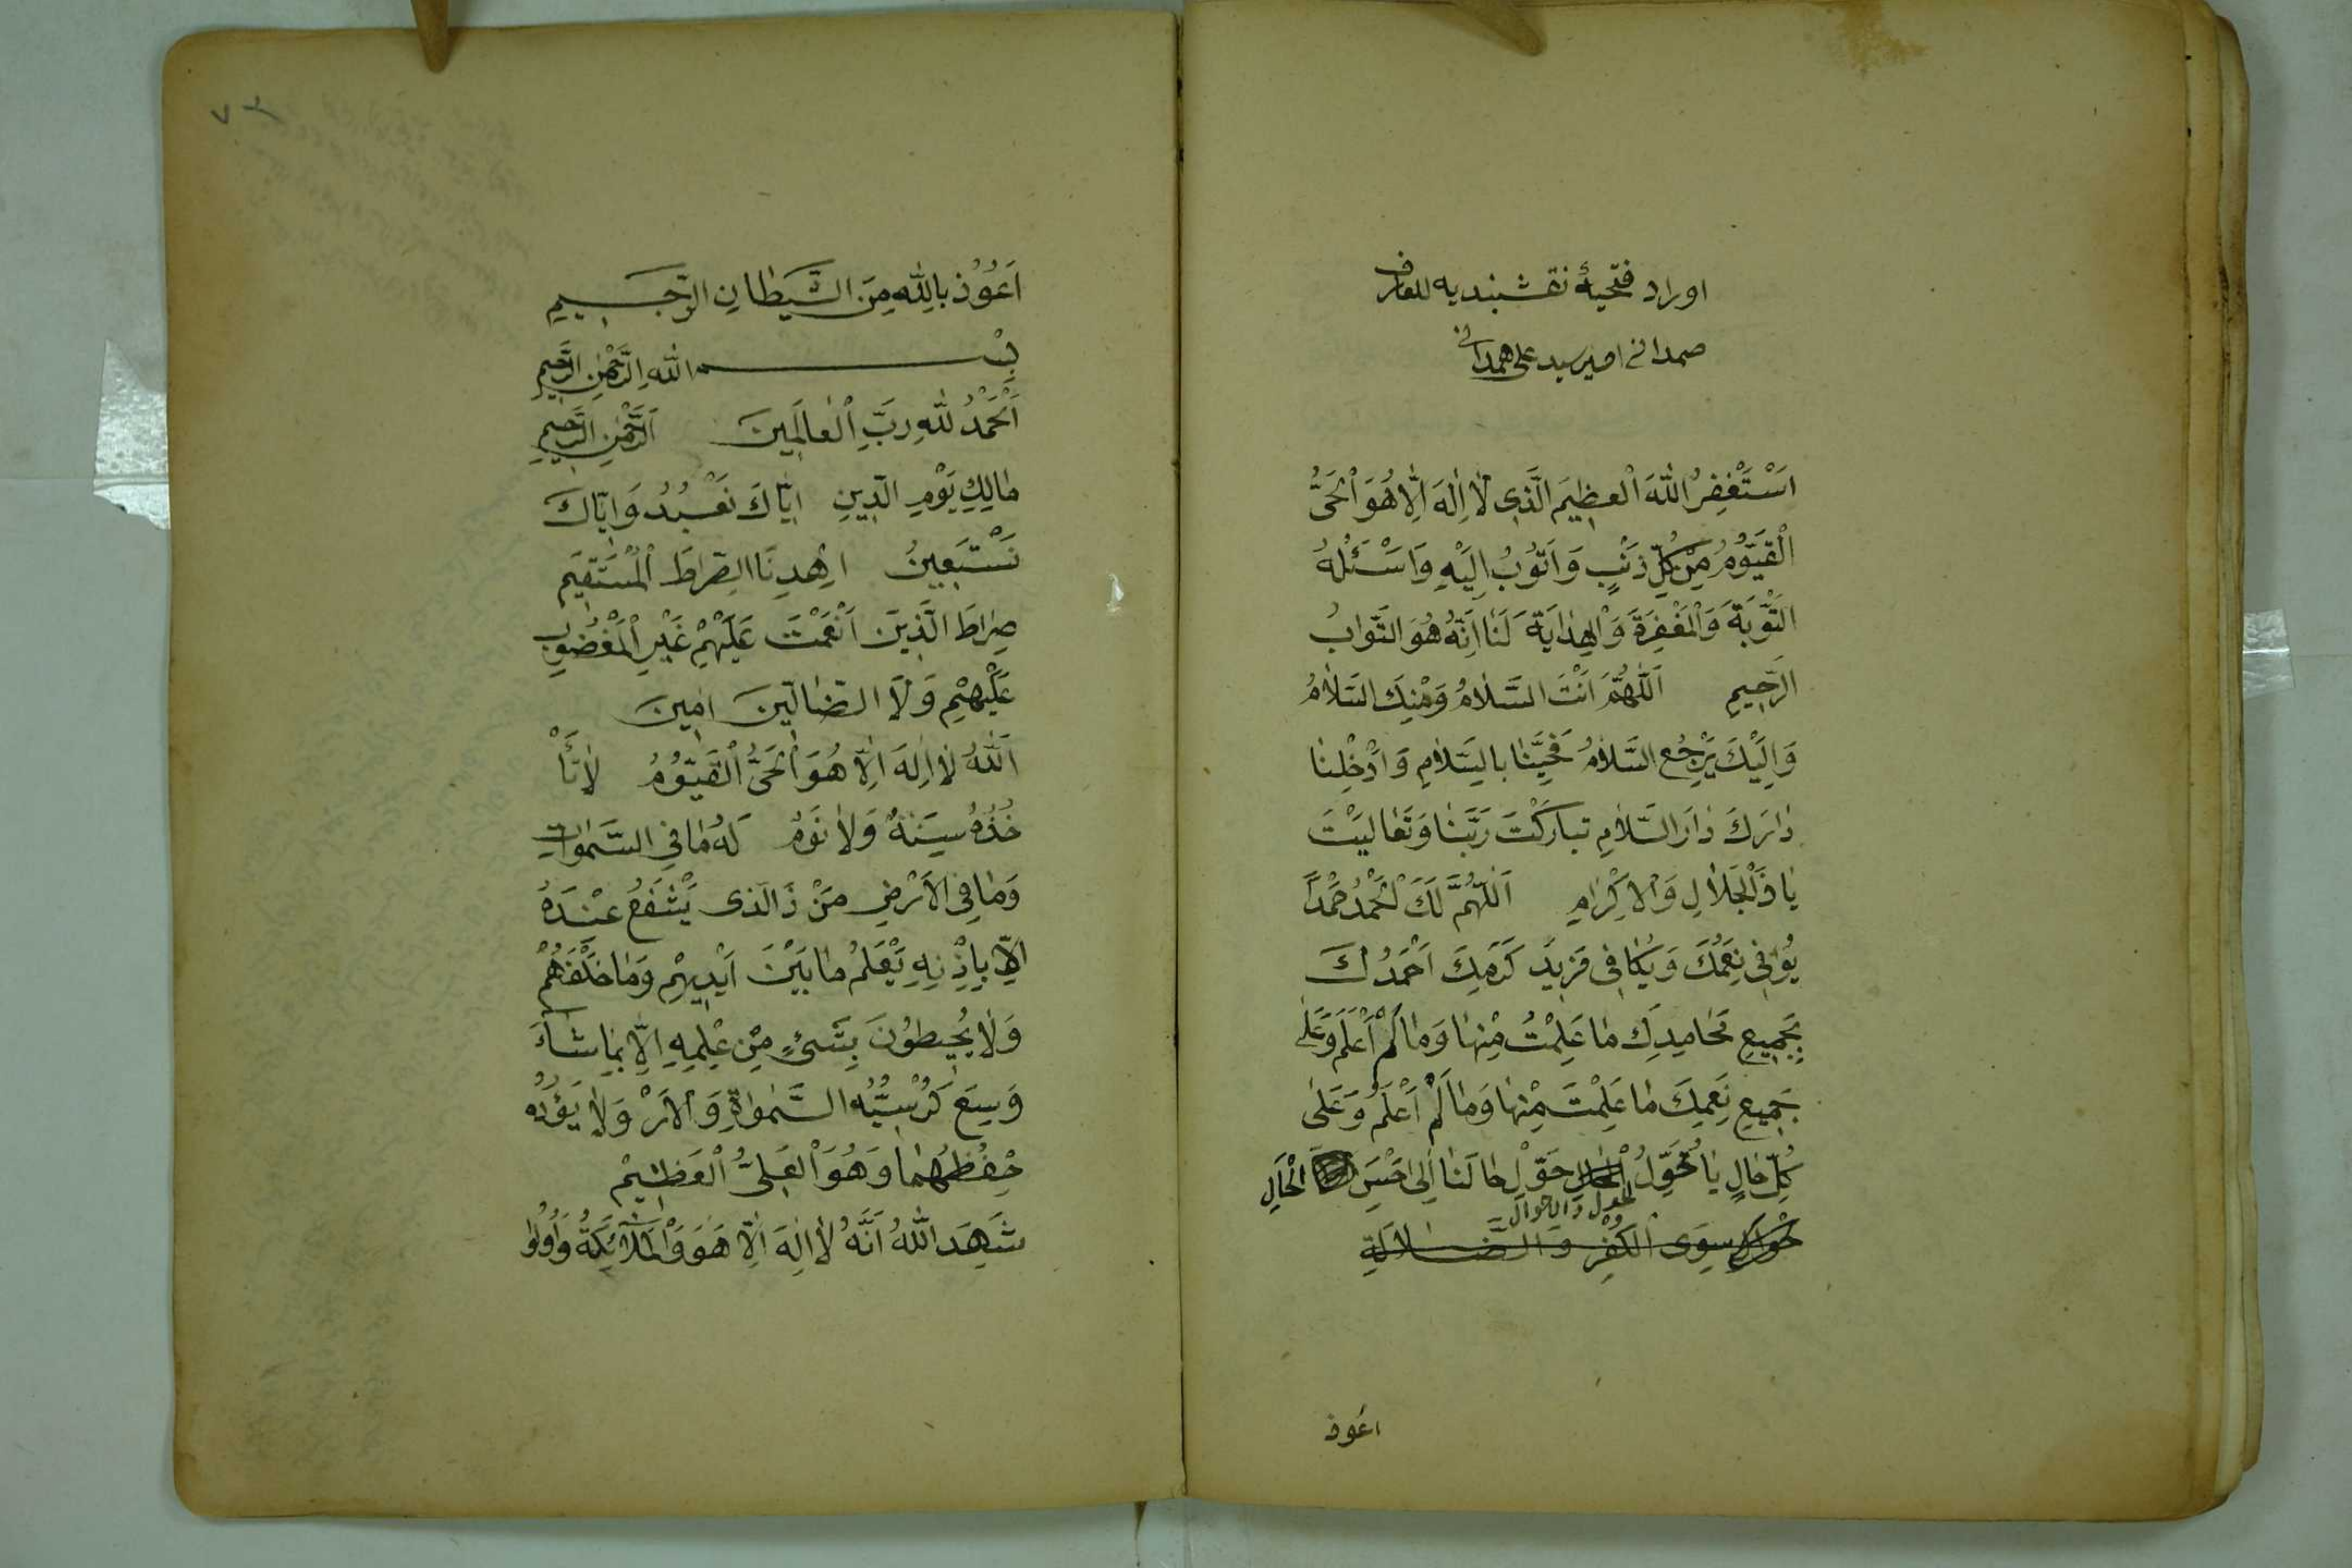 اوراد فتحيۀ نقشبنديه للعارف
صمدانى امير سيد على همدانى
اَسْتَغْفِرُ اللّٰهَ الْعَظِيمَ الَّذِى لَا اِلٰهَ اِلَّا هُوَ الْحَىُّ
الْقَيُّومُ مِنْ كُلِّ ذَنْبٍ وَاَتُوبُ اِلَيْهِ وَاَسْئَلُهُ
التَّوْبَةَ وَالْمَغْفِرَةَ وَالْهِدَايَةَ لَنَا اِنَّهُ هُوَ التَّوَّابُ
الرَّحِيمِ اَللّٰهُمَّ اَنْتَ السَّلَامُ وَمِنْكَ السَّلَامُ
وَاِلَيْكَ يَرْجِعُ السَّلَامُ فَحَيِّنَا بِالسَّلَامِ وَاَدْخِلْنَا
دَارَكَ دَارَ السَّلَامِ تَبَارَكْتَ رَبَّنَا وَتَعَالَيْتَ
يَا ذَالْجَلَالِ وَالْاِكْرَامِ اَللّٰهُمَّ لَكَ الْحَمْدُ حَمْدًا
يُوَافِى نِعَمَكَ وَيُكَافِى مَزِيدَ كَرَمِكَ اَحْمَدُكَ
بِجَمِيعِ مَحَامِدِكَ مَا عَلِمْتُ مِنْهَا وَمَا لَمْ اَعْلَمْ وَعَلٰى
جَمِيعِ نِعَمِكَ مَا عَلِمْتَ مِنْهَا وَمَا لَمْ اَعْلَمُ وَعَلٰى
كُلِّ حَالٍ يَا مُحَوِّلُ الحال حَوِّلْ حَالَنَا اِلٰى حُسْنِ الْحَالِ
الحول والاحوال
سِوَى الْكُفْرِ وَالضَّلَالَةِ
اعوذ
٧٣
اَعُوُذُ بِاللّٰهِ مِنَ الشَّيْطَانِ الرَّجِيمِ
بِسْمِ اللّٰهِ الرَّحْمٰنِ الرَّحِيمِ
اَلْحَمْدُ لِلّٰهِ رَبِّ الْعَالَمِينَ اَلرَّحْمٰنِ الرَّحِيمِ
مَالِكِ يَوْمِ الدِّينِ اِيَّاكَ نَعْبُدُ وَاِيَّاكَ
نَسْتَعِينُ اِهْدِنَا الصِّرَاطَ الْمُسْتَقِيمَ
صِرَاطَ الَّذِينَ اَنْعَمْتَ عَلَيْهِمْ غَيْرِ الْمَغْضُوبِ
عَلَيْهِمْ وَلَا الضَّالِّينَ اٰمِينَ
اَللّٰهُ لَا اِلٰهَ اِلَّا هُوَ الْحَىُّ الْقَيُّومُ لَا تَأْ
خُذُهُ سِنَةٌ وَلَا نَوْمٌ لَهُ مَا فِى السَّمٰوَاتِ
وَمَا فِى الْاَرْضِ مَنْ ذَالَّذِى يَشْفَعُ عِنْدَهُ
اِلَّا بِاِذْنِهِ يَعْلَمُ مَا بَيْنَ اَيْدِيهِمْ وَمَا خَلْفَهُمْ
وَلَا يُحِيطُونَ بِشَىْءٍ مِنْ عِلْمِهِ اِلَّا بِمَا شَاءَ
وَسِعَ كُرْسِيُّهُ السَّمٰوَاتِ وَالْاَرْ وَلَا يَؤُدُهُ
حِفْظُهُمَا وَهُوَ الْعَلِىُّ الْعَظِيمْ
شَهِدَ اللّٰهُ اَنَّهُ لَا اِلٰهَ اِلَّا هُوَ وَالْمَلَائِكَةُ وَاُولُوا